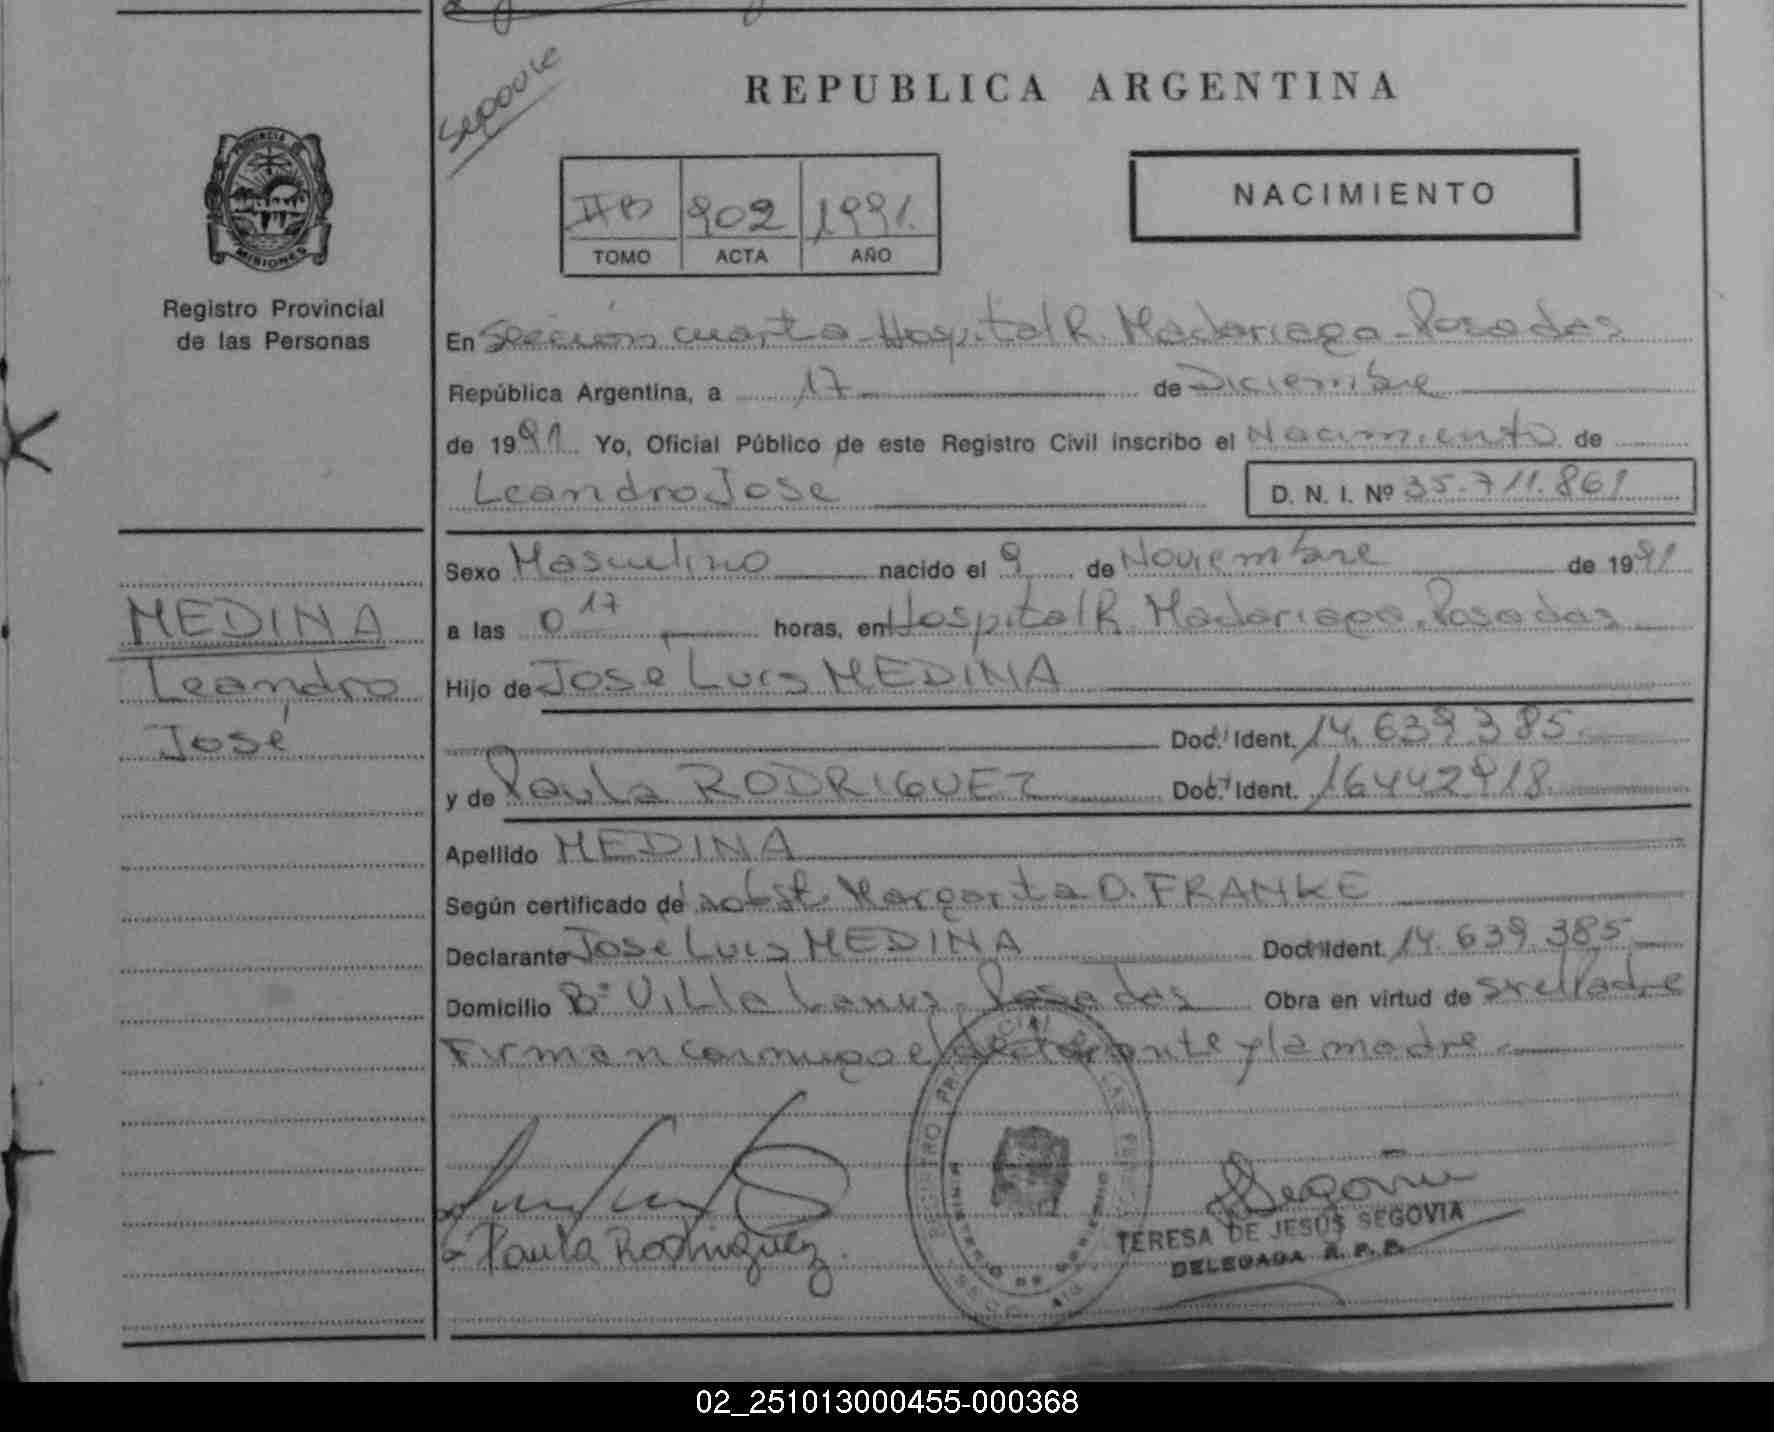 REPUBLICA ARGENTINA
PROVINCIA DE
MISIONES
Registro Provincial
de las Personas
IIB 902 1991.
TOMO ACTA AÑO
NACIMIENTO
En Sección cuarta-Hospital R. Madariaga-Posadas
República Argentina, a 17 de Diciembre
de 1991 Yo, Oficial Público de este Registro Civil inscribo el Nacimiento de
Leandro Jose
D. N. I. Nº 35.711.861
MEDINA
Leandro
José
Sexo Masculino nacido el 9 de Noviembre de 1991
a las 0 17 horas, en Hospital R. Madariaga. Posadas
Hijo de José Luis MEDINA
Doc. Ident. 14.639.385
y de Paula RODRIGUEZ Doc. Ident. 16442918
Apellido MEDINA
Según certificado de obst. Margarita D. FRANKE
Declarante José Luis MEDINA Doc. Ident. 14.639.385
Domicilio Bº Villa Lanus. Posadas Obra en virtud de ser el Padre
Firman conmigo el declarante y la madre
Paula Rodriguez.
Segovia
TERESA DE JESUS SEGOVIA
DELEGADA R. P. P.
MINISTERIO DE GOBIERNO
02_251013000455-000368